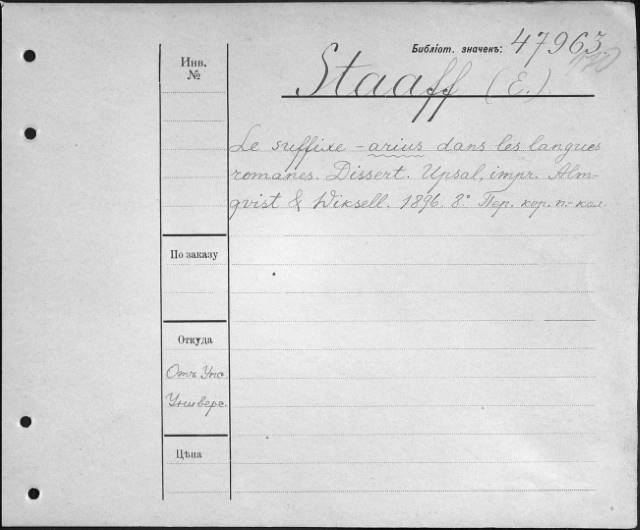 Библіот. значекъ: 47963
Инв.
№
Staaff (E.)
Le suffixe -arius dans les langues
romanes. Dissert. Upsal, impr. Alm-
qvist & Wiksell. 1896. 8° Пер. кор. п.-кол.
По заказу
Откуда
Отъ Упс.
Универс.
Цѣна